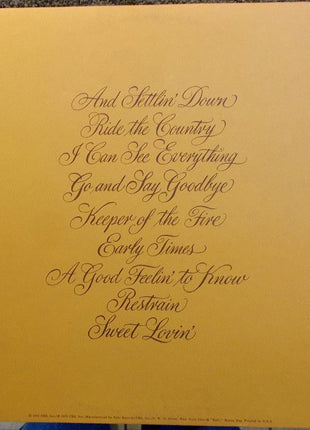 And Settlin' Down
Ride the Country
I Can See Everything
Go and Say Goodbye
Keeper of the Fire
Early Times
A Good Feelin' to Know
Restrain
Sweet Lovin'